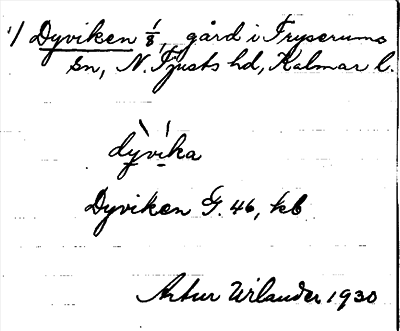 1) Dyviken 1/8, gård i Tryserums
sn, N. Tjusts hd, Kalmar l.
dỳ̱ví̱ka
Dyviken G. 46, kb
Artur Wilander 1930